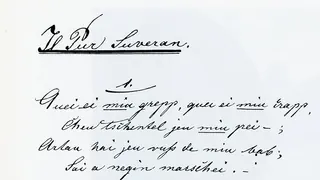 Il Pur Suveran.
1.
Quei ei mia grepp, quei ei miu crapp,
Cheu tschentel jeu miu pei - ;
Artau hai jeu vuss de miu bab;
Sai a negin marschei. -